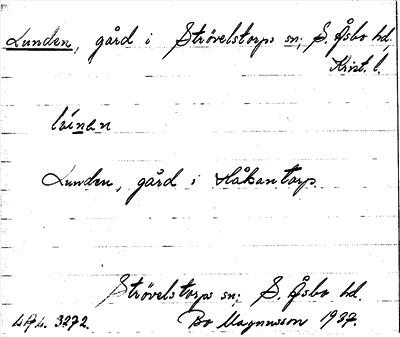 Lunden, gård i Strövelstorps sn; S. Åsbo hd,
Krist. l.
Lunden, gård i Håkantorp
Strövelstorps sn; S. Åsbo hd.
3272. Bo Magnusson 1937.